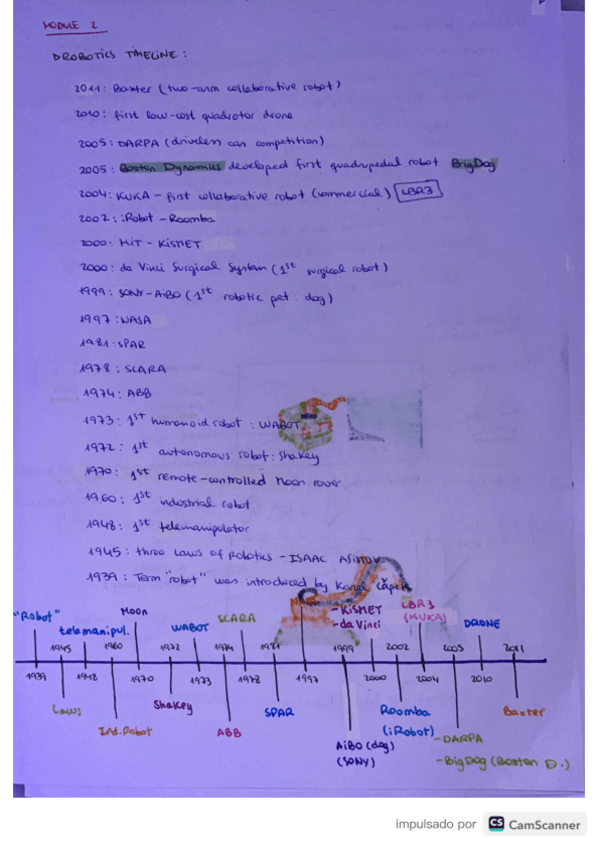 MODULE 2
ROBOTICS TIMELINE:
2011: Baxter (two-arm collaborative robot)
2010: first low-cost quadrotor drone
2005: DARPA (driveless car competition)
2005: Boston Dynamics developed first quadrupedal robot BigDog
2004: KUKA - first collaborative robot (commercial) LBR3
2002: iRobot - Roomba
2000: MIT - KISMET
2000: da Vinci Surgical System (1st surgical robot)
1999: SONY-AiBO (1st robotic pet: dog)
1997: NASA
1981: SPAR
1978: SCARA
1974: ABB
1973: 1st humanoid robot: WABOT
1972: 1st autonomous robot: Shakey
1970: 1st remote-controlled Moon rover
1960: 1st industrial robot
1948: 1st telemanipulator
1945: three Laws of Robotics - ISAAC Asimov
1939: Term "robot" was introduced by Karel Čapek
"Robot" telemanipul. MOON WABOT SCARA -KISMET -da Vinci LBR3 (KUKA) DRONE
1945 1960 1972 1974 1981 1999 2002 2005 2011
1939 1948 1970 1973 1978 1997 2000 2004 2010
Laws Ind.Robot Shakey ABB SPAR AiBO (dog) (SONY) Roomba (iRobot) -DARPA -BigDog (Boston D.) Baxter
impulsado por CS CamScanner